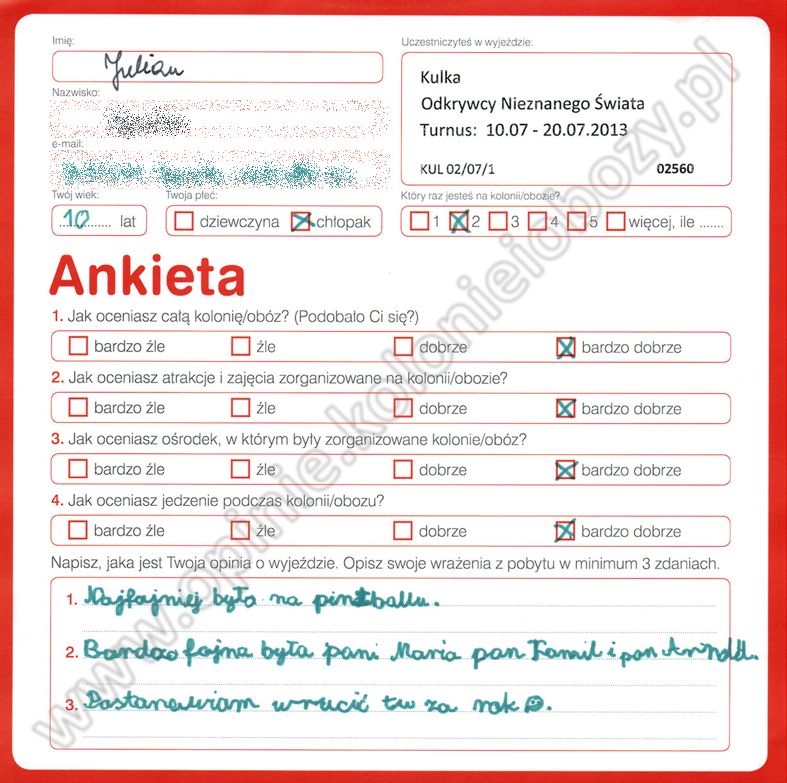 Imię:
Julian
Nazwisko:
e-mail:
Twój wiek:
10 lat
Twoja płeć:
dziewczyna chłopak
Uczestniczyłeś w wyjeździe:
Kulka
Odkrywcy Nieznanego Świata
Turnus: 10.07 - 20.07.2013
KUL 02/07/1 02560
Który raz jesteś na kolonii/obozie?
1 2 3 4 5 więcej, ile .......
Ankieta
1. Jak oceniasz całą kolonię/obóz? (Podobało Ci się?)
bardzo źle źle dobrze bardzo dobrze
2. Jak oceniasz atrakcje i zajęcia zorganizowane na kolonii/obozie?
bardzo źle źle dobrze bardzo dobrze
3. Jak oceniasz ośrodek, w którym były zorganizowane kolonie/obóz?
bardzo źle źle dobrze bardzo dobrze
4. Jak oceniasz jedzenie podczas kolonii/obozu?
bardzo źle źle dobrze bardzo dobrze
Napisz, jaka jest Twoja opinia o wyjeździe. Opisz swoje wrażenia z pobytu w minimum 3 zdaniach.
1. Najfajniej było na pintballu.
2. Bardzo fajna była pani Maria pan Kamil i pan Arnold.
3. Postanawiam wrucić tu za rok.
www.opinie.kolonieiobozy.pl